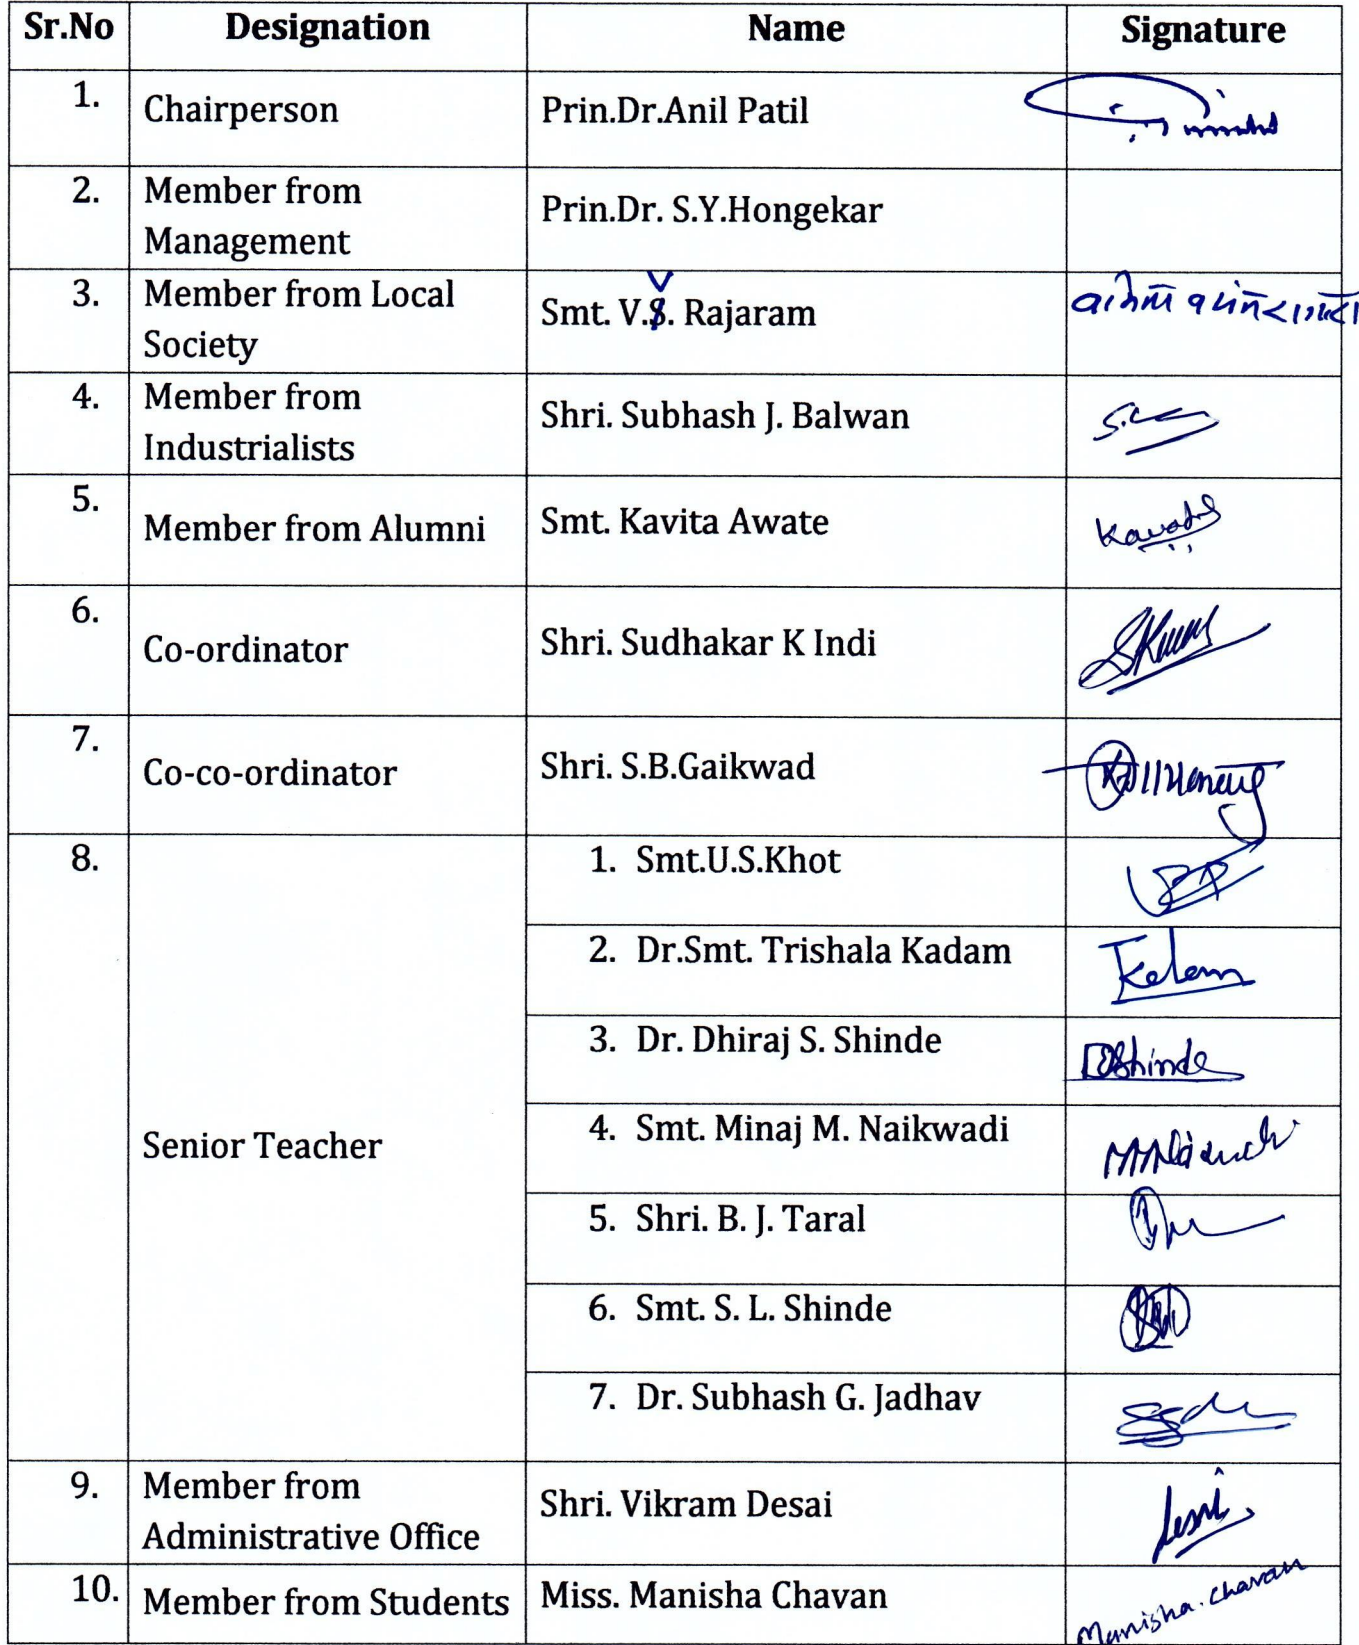 Sr.No Designation Name Signature
1. Chairperson Prin.Dr.Anil Patil
2. Member from
Management Prin.Dr. S.Y.Hongekar
3. Member from Local
Society Smt. V.V. Rajaram
4. Member from
Industrialists Shri. Subhash J. Balwan
5. Member from Alumni Smt. Kavita Awate
6. Co-ordinator Shri. Sudhakar K Indi
7. Co-co-ordinator Shri. S.B.Gaikwad
8. Senior Teacher
1. Smt.U.S.Khot
2. Dr.Smt. Trishala Kadam
3. Dr. Dhiraj S. Shinde DShinde
4. Smt. Minaj M. Naikwadi
5. Shri. B. J. Taral
6. Smt. S. L. Shinde
7. Dr. Subhash G. Jadhav
9. Member from
Administrative Office Shri. Vikram Desai
10. Member from Students Miss. Manisha Chavan Manisha. Chavan